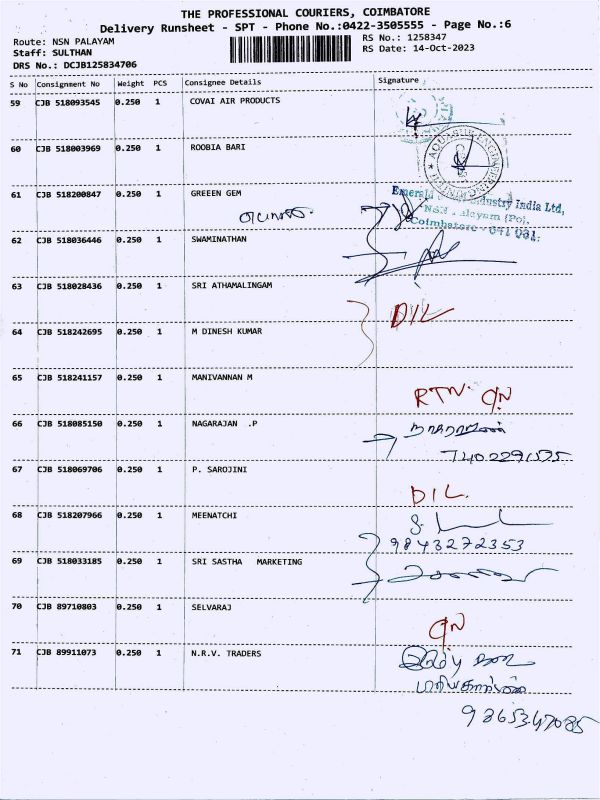 THE PROFESSIONAL COURIERS, COIMBATORE
Delivery Runsheet - SPT - Phone No.:0422-3505555 - Page No.:6
Route: NSN PALAYAM RS No.: 1258347
Staff: SULTHAN RS Date: 14-Oct-2023
DRS No.: DCJB125834706
S No Consignment No Weight PCS Consignee Details Signature
59 CJB 518093545 0.250 1 COVAI AIR PRODUCTS
60 CJB 518003969 0.250 1 ROOBIA BARI
61 CJB 518200847 0.250 1 GREEEN GEM
Emerald Industry India Ltd,
NSN Palayam (Po),
Coimbatore - 641 031.
62 CJB 518036446 0.250 1 SWAMINATHAN
63 CJB 518028436 0.250 1 SRI ATHAMALINGAM
DIL
64 CJB 518242695 0.250 1 M DINESH KUMAR
65 CJB 518241157 0.250 1 MANIVANNAN M
RTN.
66 CJB 518085150 0.250 1 NAGARAJAN .P
நாகராஜன்
67 CJB 518069706 0.250 1 P. SAROJINI
DIL.
68 CJB 518207966 0.250 1 MEENATCHI
9843272353
69 CJB 518033185 0.250 1 SRI SASTHA MARKETING
70 CJB 89710803 0.250 1 SELVARAJ
71 CJB 89911073 0.250 1 N.R.V. TRADERS